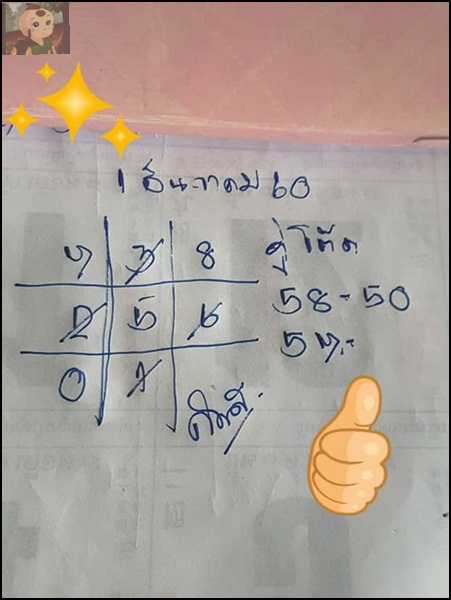 1 ธันวาคม 60
7 3 8
2 5 6
0 1
คู่โต๊ด
58-50
57.-